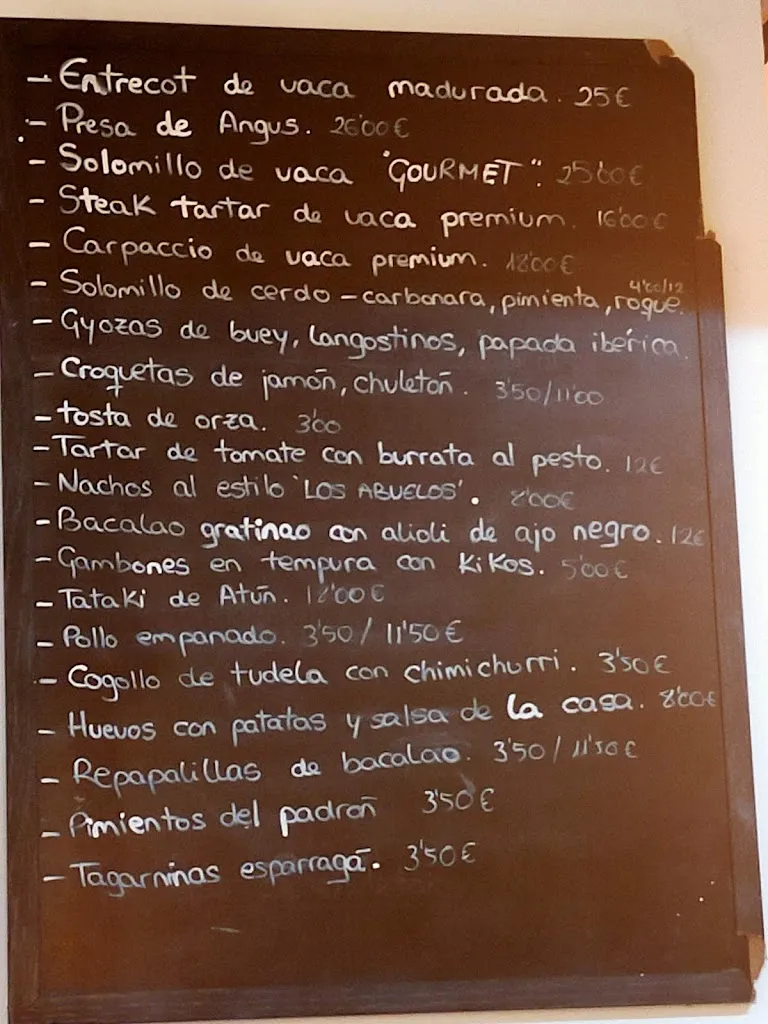 - Entrecot de vaca madurada. 25€
- Presa de Angus. 26'00€
- Solomillo de vaca "GOURMET". 25'00€
- Steak tartar de vaca premium. 16'00€
- Carpaccio de vaca premium. 18'00€
- Solomillo de cerdo - carbonara, pimienta, roque. 4'00/12
- Gyozas de buey, langostinos, papada ibérica.
- Croquetas de jamón, chuletón. 3'50/11'00
- tosta de orza. 3'00
- Tartar de tomate con burrata al pesto. 12€
- Nachos al estilo 'LOS ABUELOS'. 8'00€
- Bacalao gratinao con alioli de ajo negro. 12€
- Gambones en tempura con KiKos. 5'00€
- Tataki de Atún. 12'00€
- Pollo empanado. 3'50 / 11'50€
- Cogollo de tudela con chimichurri. 3'50€
- Huevos con patatas y salsa de la casa. 8'00€
- Repapalillas de bacalao. 3'50 / 11'50€
- Pimientos del padrón 3'50€
- Tagarninas esparragá. 3'50€